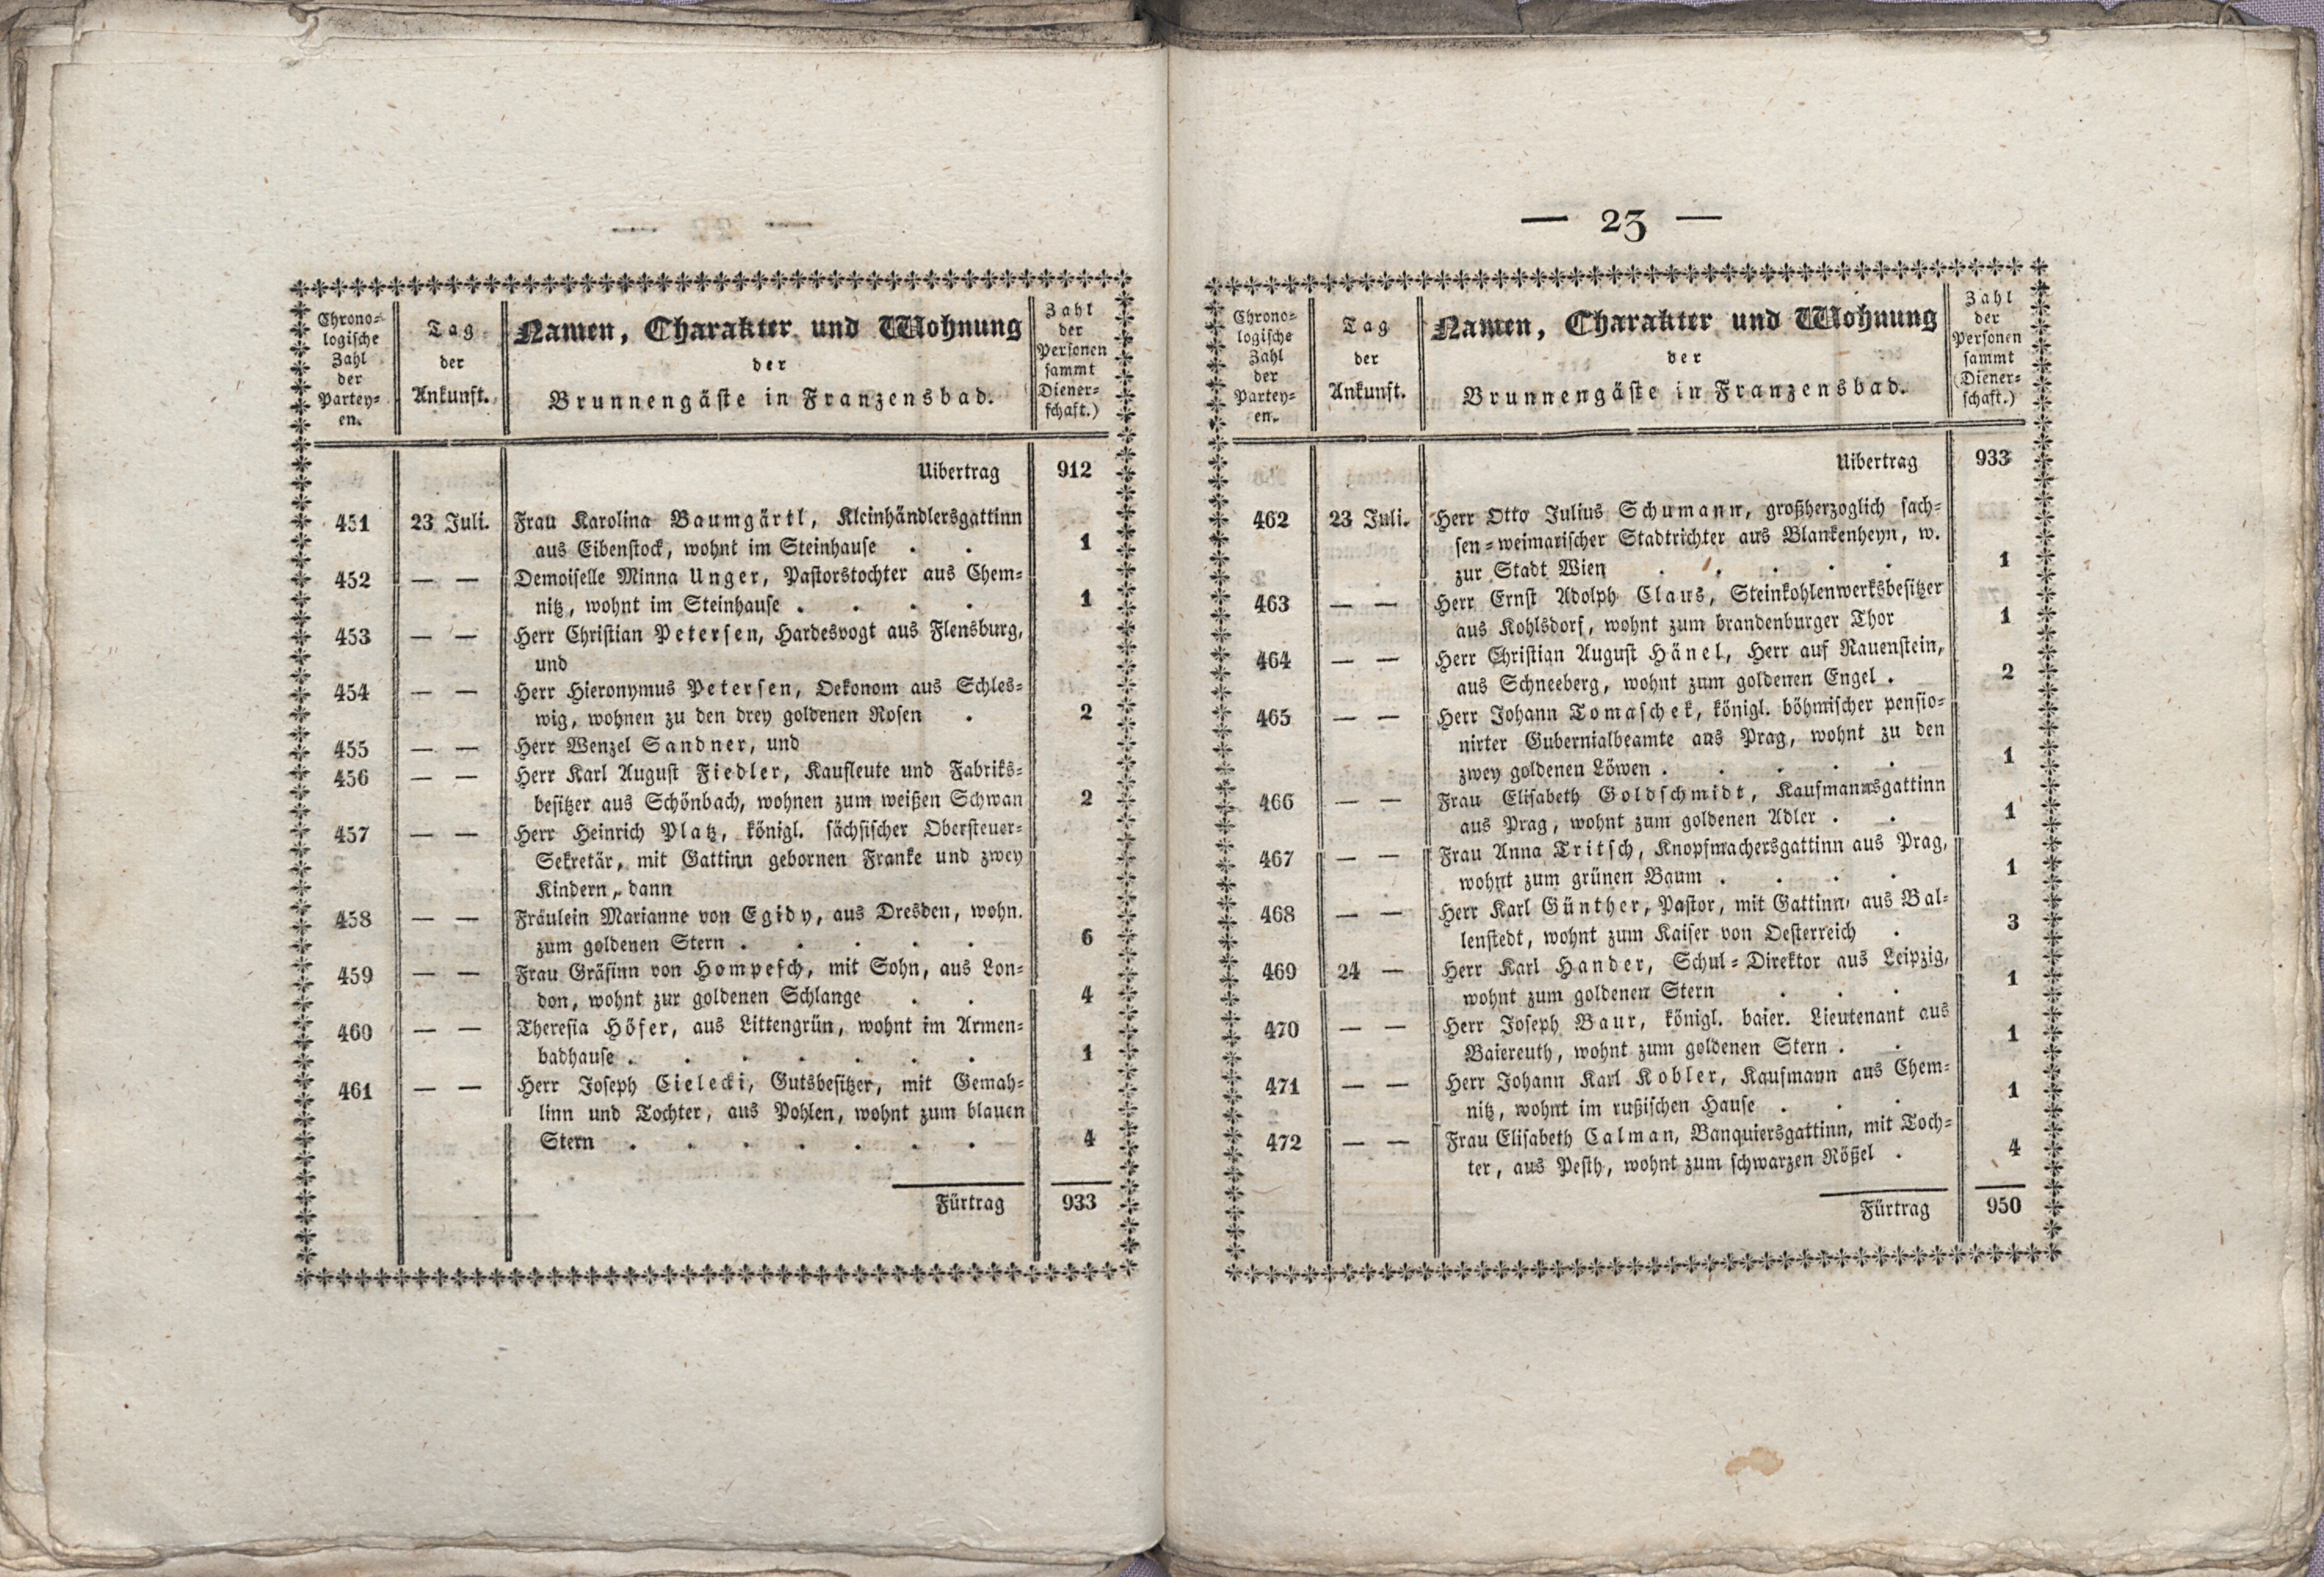 Chrono-
logische
Zahl
der
Partey-
en.
Tag
der
Ankunft.
Namen, Charakter und Wohnung
der
Brunnengäste in Franzensbad.
Zahl
der
Personen
sammt
Diener-
schaft.)
Uibertrag 912
451 23 Juli. Frau Karolina Baumgärtl, Kleinhändlersgattinn
aus Eibenstock, wohnt im Steinhause . . 1
452 — — Demoiselle Minna Unger, Pastorstochter aus Chem=
nitz, wohnt im Steinhause . . . . 1
453 — — Herr Christian Petersen, Hardesvogt aus Flensburg,
und
454 — — Herr Hieronymus Petersen, Oekonom aus Schles=
wig, wohnen zu den drey goldenen Rosen . 2
455 — — Herr Wenzel Sandner, und
456 — — Herr Karl August Fiedler, Kaufleute und Fabriks=
besitzer aus Schönbach, wohnen zum weißen Schwan 2
457 — — Herr Heinrich Platz, königl. sächsischer Obersteuer=
Sekretär, mit Gattinn gebornen Franke und zwey
Kindern, dann
458 — — Fräulein Marianne von Egidy, aus Dresden, wohn.
zum goldenen Stern . . . . . 6
459 — — Frau Gräfinn von Hompesch, mit Sohn, aus Lon=
don, wohnt zur goldenen Schlange . . 4
460 — — Theresia Höfer, aus Littengrün, wohnt im Armen=
badhause . . . . . . . 1
461 — — Herr Joseph Cielecki, Gutsbesitzer, mit Gemah=
linn und Tochter, aus Pohlen, wohnt zum blauen
Stern . . . . . . . 4
Fürtrag 933
— 23 —
Chrono-
logische
Zahl
der
Partey=
en.
Tag
der
Ankunft.
Namen, Charakter und Wohnung
der
Brunnengäste in Franzensbad.
Zahl
der
Personen
sammt
(Diener=
schaft.)
Uibertrag 933
462 23 Juli. Herr Otto Julius Schumann, großherzoglich sach=
sen=weimarischer Stadtrichter aus Blankenheyn, w.
zur Stadt Wien . . . . . 1
463 — — Herr Ernst Adolph Claus, Steinkohlenwerksbesitzer
aus Kohlsdorf, wohnt zum brandenburger Thor 1
464 — — Herr Christian August Hänel, Herr auf Rauenstein,
aus Schneeberg, wohnt zum goldenen Engel . 2
465 — — Herr Johann Tomaschek, königl. böhmischer pensio=
nirter Gubernialbeamte aus Prag, wohnt zu den
zwey goldenen Löwen . . . . . 1
466 — — Frau Elisabeth Goldschmidt, Kaufmannsgattinn
aus Prag, wohnt zum goldenen Adler . . 1
467 — — Frau Anna Tritsch, Knopfmachersgattinn aus Prag,
wohnt zum grünen Baum . . . . 1
468 — — Herr Karl Günther, Pastor, mit Gattinn, aus Bal=
lenstedt, wohnt zum Kaiser von Oesterreich . 3
469 24 — Herr Karl Hander, Schul=Direktor aus Leipzig,
wohnt zum goldenen Stern . . . 1
470 — — Herr Joseph Baur, königl. baier. Lieutenant aus
Baiereuth, wohnt zum goldenen Stern . . 1
471 — — Herr Johann Karl Kobler, Kaufmann aus Chem=
nitz, wohnt im rußischen Hause . . . 1
472 — — Frau Elisabeth Calman, Banquiersgattinn, mit Toch=
ter, aus Pesth, wohnt zum schwarzen Rößel . 4
Fürtrag 950